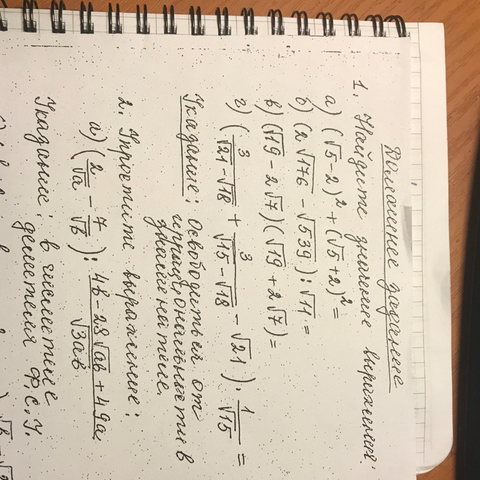 Домашнее задание
1. Найдите значение выражения:
а) (√5-2)² + (√5+2)² =
б) (2√176 - √539) : √11 =
в) (√19 - 2√7)(√19 + 2√7) =
г) (3/(√21-√18) + 3/(√15-√18) - √21) · 1/√15 =
Указание: Освободиться от
иррациональности в
знаменателе.
2. Упростить выражение:
а) (2/√a - 7/√b) : (4b-28√ab+49a)/√3ab
Указание: в числителе
делителя Ф.С.У.